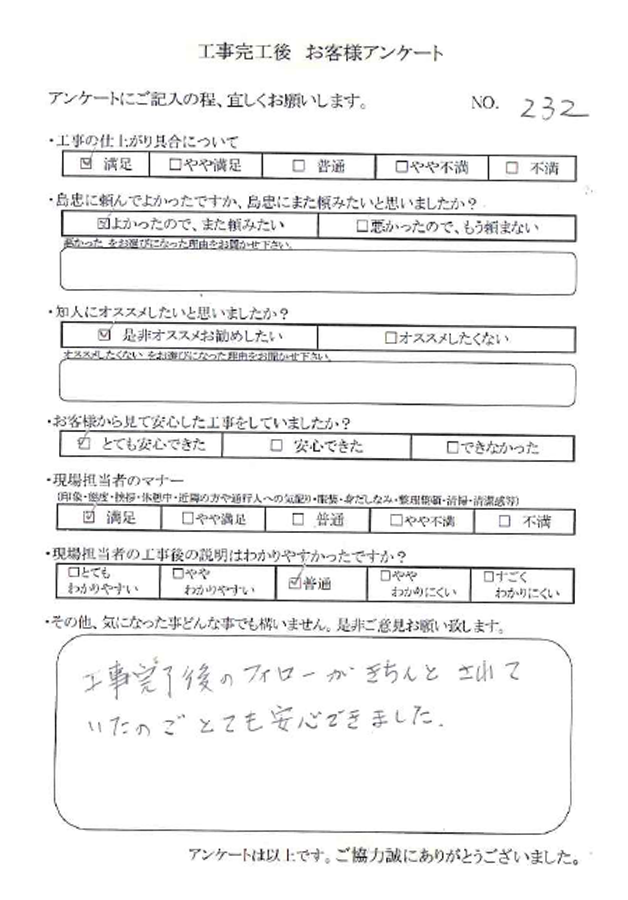 工事完工後 お客様アンケート
アンケートにご記入の程、宜しくお願いします。 NO. 232
・工事の仕上がり具合について
☑ 満足 □やや満足 □ 普通 □やや不満 □ 不満
・島忠に頼んでよかったですか、島忠にまた頼みたいと思いましたか？
☑よかったので、また頼みたい □悪かったので、もう頼まない
悪かった をお選びになった理由をお聞かせ下さい。
・知人にオススメしたいと思いましたか？
☑ 是非オススメお勧めしたい □オススメしたくない
オススメしたくない をお選びになった理由をお聞かせ下さい。
・お客様から見て安心した工事をしていましたか？
☑ とても安心できた □ 安心できた □できなかった
・現場担当者のマナー
(印象・態度・挨拶・休憩中・近隣の方や通行人への気配り・服装・身だしなみ・整理整頓・清掃・清潔感等)
☑ 満足 □やや満足 □ 普通 □やや不満 □ 不満
・現場担当者の工事後の説明はわかりやすかったですか？
□とても わかりやすい □やや わかりやすい ☑普通 □やや わかりにくい □すごく わかりにくい
・その他、気になった事どんな事でも構いません。是非ご意見お願い致します。
工事完了後のフィローがきちんとされて
いたのでとても安心できました.
アンケートは以上です。ご協力誠にありがとうございました。